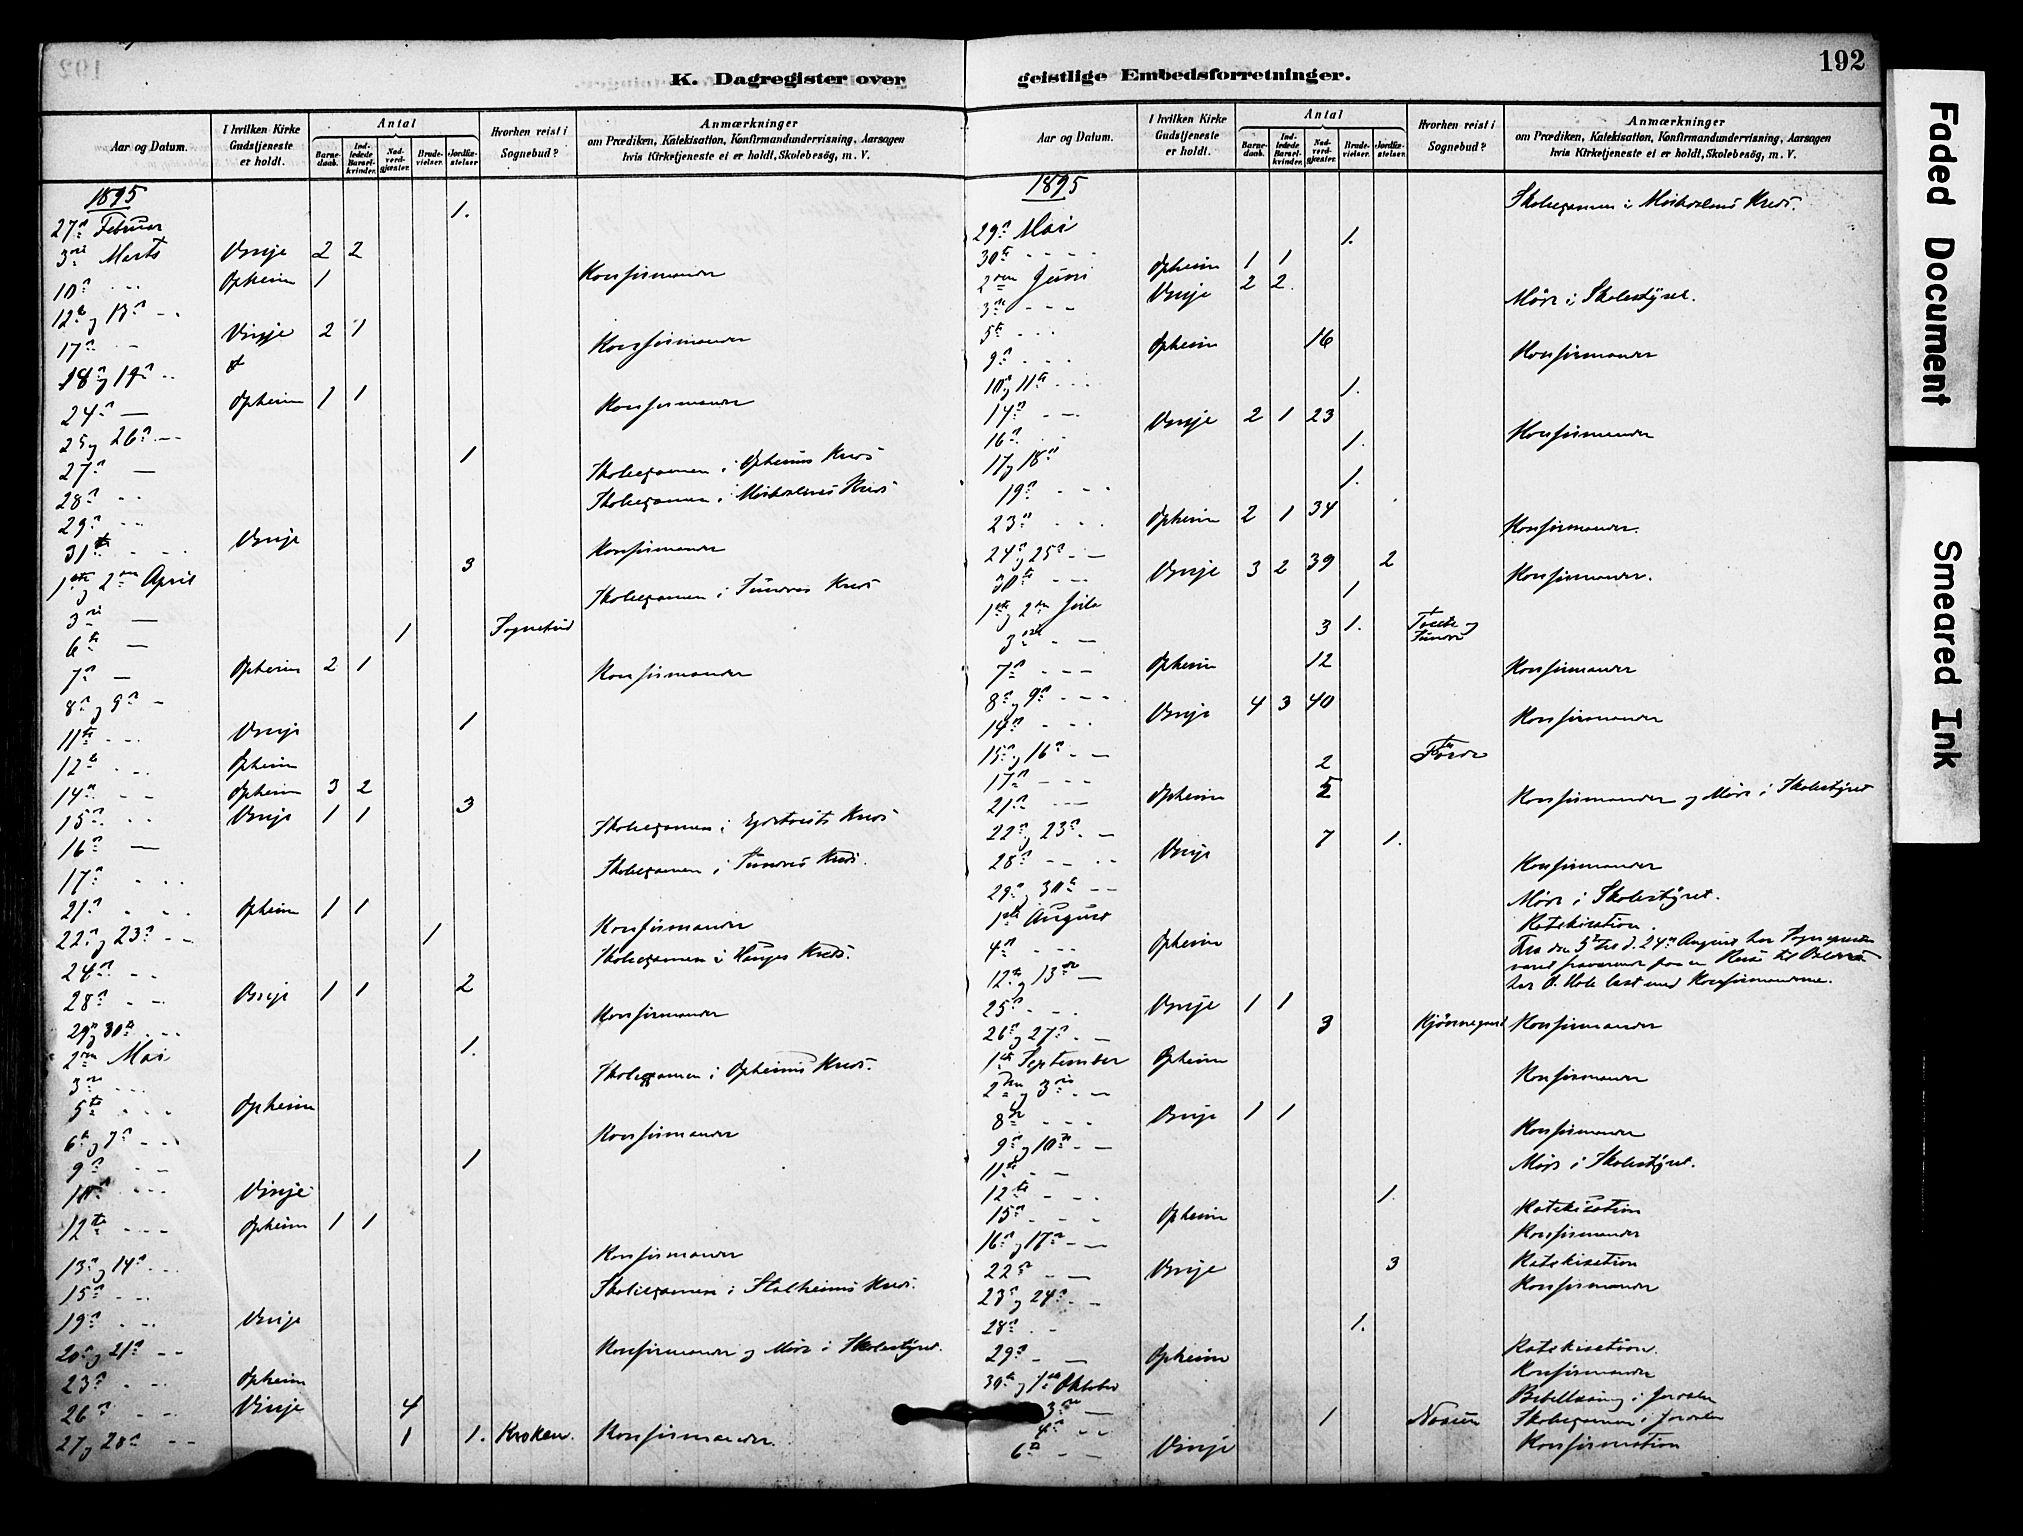 192
K. Dagregister over geistlige Embedsforretninger.
Aar og Datum.
I hvilken Kirke Gudstjeneste er holdt.
Antal
Barnedaab.
Indledede Barselkvinder.
Nadverdgjæster.
Brudevielser.
Jordfæstelser.
Hvorhen reist i Sognebud?
Anmærkninger
om Prædiken, Katekisation, Konfirmandundervisning, Aarsagen
hvis Kirketjeneste ei er holdt, Skolebesög, m. V.
1895
27de Februar 1.
3die Marts Vinje 2 2
10de - - Opheim 1
12te og 13de - - Konfirmander
17de - - Vinje 2 1
18de og 19de - - Konfirmander
24de — Opheim 1 1
25 og 26de - - Konfirmander
27de — 1
28de - - Skoleexamen i Opheims Kreds
29de - - Skoleexamen i Kreds
31te - - Vinje
1ste og 2den April 3 Konfirmander
3die — Skoleexamen i Kreds
6te — 1 Sognebud
7de — Opheim 2 1
8de og 9de - Konfirmander
11te - - Vinje 1
12te - - Opheim
14de - - Opheim 3 2
15de - - Vinje 1 1 3
16de — Skoleexamen i Kreds
17de - - Skoleexamen i Kreds.
21de - - - Opheim 1 1
22de og 23de - - 1 Konfirmander
24de - - Skoleexamen i Kreds.
28de - - Vinje 1 1 2
29de og 30te - - Konfirmander
2den Mai 1.
3die - - Skoleexamen i Opheims Kreds.
5te - - - Opheim
6te og 7de - - Konfirmander
9de - - 1
10de - - - Vinje
12te - - - Opheim 1 1
13de og 14de - - Konfirmander
15de - - Skoleexamen i Stalheims Kreds.
19de - - Vinje
20de og 21de - - Konfirmander og Møde i Skolestyret.
23de - - Opheim
26de - - Vinje 4
27 og 28de - - 1 1. Kroken. Konfirmander.
Aar og Datum.
I hvilken Kirke Gudstjeneste er holdt.
Antal
Barnedaab.
Indledede Barselkvinder.
Nadverdgjæster.
Brudevielser.
Jordfæstelser.
Hvorhen reist i Sognebud?
Anmærkninger
om Prædiken, Katekisation, Konfirmandundervisning, Aarsagen
hvis Kirketjeneste ei er holdt, Skolebesög, m. V.
1895
29de Mai Skoleexamen i Kreds.
30te - - - - 1.
2den Juni Opheim 1 1
3die - - - Vinje 2 2.
5te - - - Møde i Skolestyret.
9de - - - Opheim 16
10de og 11te - - - Konfirmander
14de - - - 1.
16de - - Vinje 2 1 23
17 og 18de 1. Konfirmander
19de - - - 1.
23de - - - Opheim 2 1 34
24de og 25de - - Konfirmander.
30te - - - Vinje 3 2 39 2
1ste og 2den Juli 1 Konfirmander.
3die - - 3 1. og
7de - - - Opheim 12
8de og 9de - - - Konfirmander
14de - - - Vinje 4 3 40
15de og 16de - - Konfirmander
17de - - - 2
21de - - Opheim 5
22de og 23de - - Konfirmander og Møde i Skolestyret
28de - - - Vinje 7 1.
29de og 30te - - Konfirmander
1ste August Møde i Skolestyret.
4de - - - Opheim Katekisation.
12te og 13de - Fra den 5te til d. 24de August har Sognepresten
været fraværende paa en Reise til
har O. Hole læst med Konfirmanderne.
25de - - - Vinje 1 1
26de og 27de - - 3 Konfirmander
1ste September Opheim
2den og 3die - - Konfirmander
8de - - - Vinje 1 1
9de og 10de - - Konfirmander
11te - - Møde i Skolestyret.
12te - - - 1.
15de - - - Opheim Katekisation
16de og 17de - - Konfirmander
22de - - Vinje 3 Katekisation
23de og 24de - - Konfirmander
28de - - 1.
29de - - Opheim Katekisation.
30te og 1ste Oktober Konfirmander
3die - Bibellæsning i
4de - - 1 Skoleexamen i
6te - - Vinje Konfirmation
Faded Document
Smeared Ink